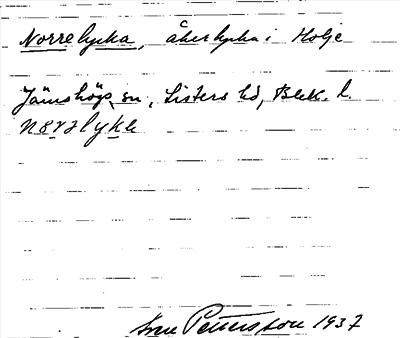 Norrelycka, åkerlycka i Holje
Jämshögs sn, Listers hd, Blek. l.
Pettersson 1937